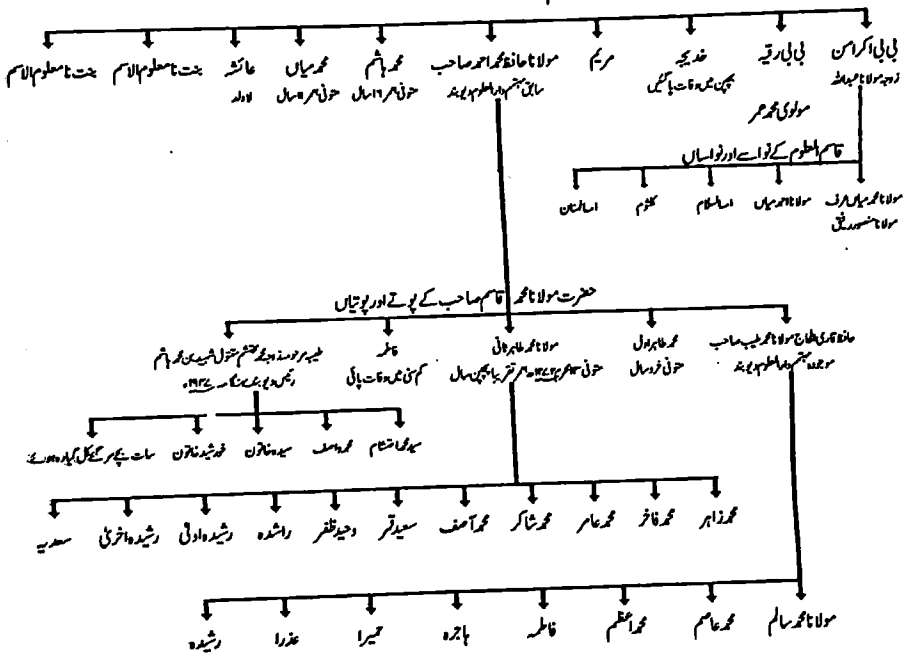 بی بی اکرامن
زوجہ مولانا عبداللہ
بی بی رقیہ
خدیجہ
بچپن میں وفات پا گئیں
مریم
مولانا حافظ محمد احمد صاحب
سابق مہتمم دارالعلوم دیوبند
محمد ہاشم
متوفی بعمر ۱۶ سال
محمد میاں
متوفی بعمر سال
عائشہ
لاولد
بنت نامعلوم الاسم
بنت نامعلوم الاسم
مولوی محمد عمر
قاسم العلوم کے نواسے اور نواسیاں
مولانا محمد میاں عرف
مولانا منصور
مولانا احمد میاں
امۃ السلام
کلثوم
امۃ المنان
حضرت مولانا محمد قاسم صاحب کے پوتے اور پوتیاں
حافظ قاری الحاج مولانا محمد طیب صاحب
موجودہ مہتمم دارالعلوم دیوبند
محمد طاہر اول
متوفی خرد سال
مولانا محمد طاہر ثانی
متوفی محرم بعمر تقریباً پچپن سال
فاطمہ
کم سنی میں وفات پائی
طیبہ مرحومہ زوجہ محمد محتشم مقتول شہید بن محمد ہاشم
رئیس دیوبند
سید محمد احتشام
محمد واصف
سیدہ خاتون
خورشید خاتون
سات بچے مر گئے کل گیارہ ہوئے
محمد زاہر
محمد فاخر
محمد عامر
محمد شاکر
محمد آصف
سعید قمر
وحید ظفر
راشدہ
رشیدہ اولیٰ
رشیدہ اخریٰ
سعدیہ
مولانا محمد سالم
محمد عاصم
محمد اعظم
فاطمہ
ہاجرہ
حمیرا
عذرا
رشیدہ